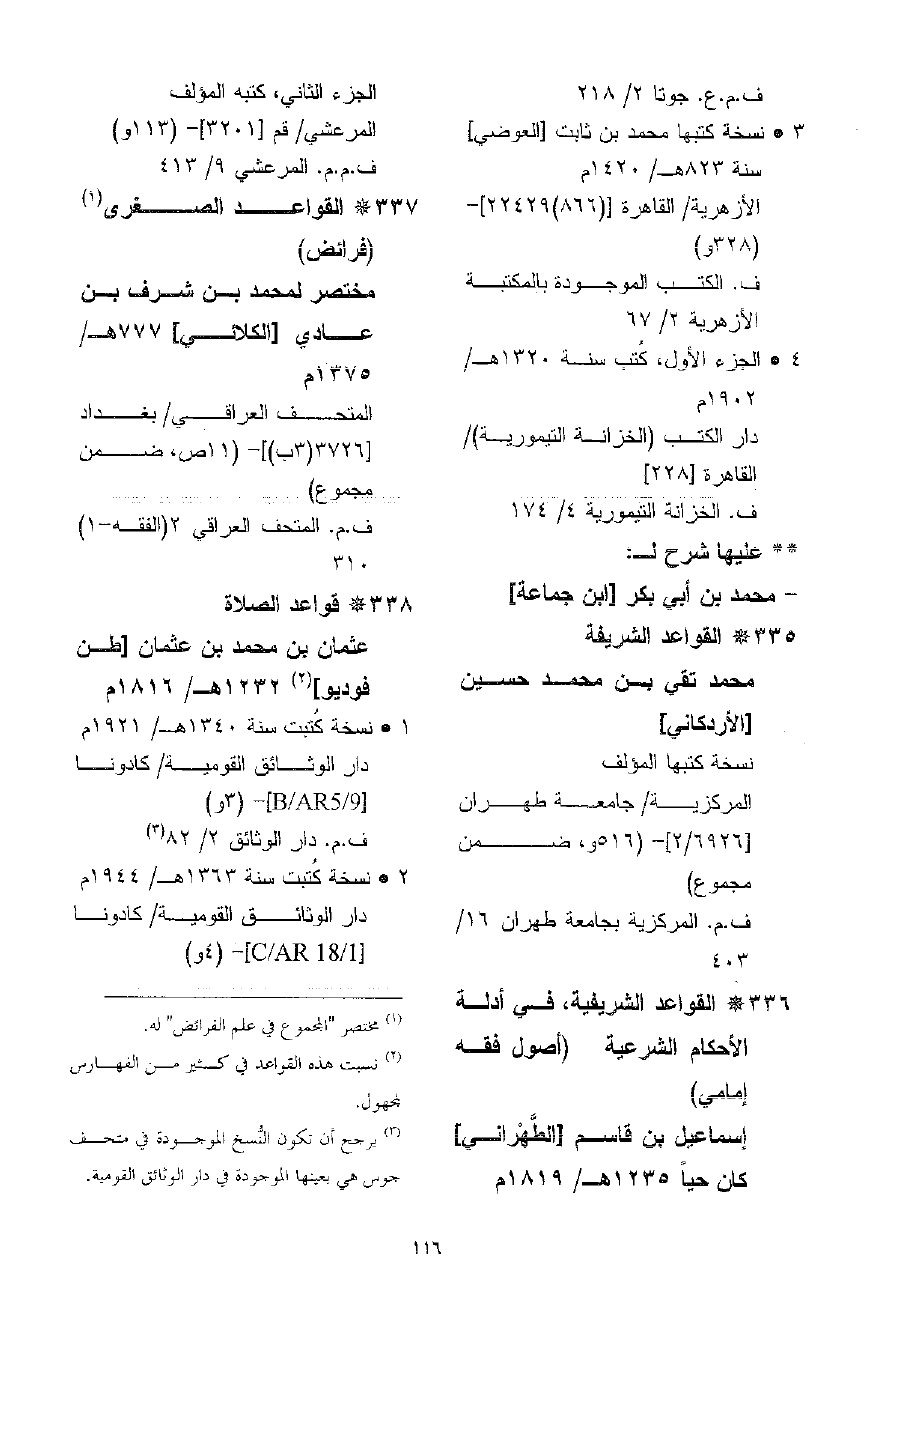 ف.م.ع. جوتا ٢/ ٢١٨
٣ • نسخة كتبها محمد بن ثابت [العوضي]
سنة ٨٢٣هـ/ ١٤٢٠م
الأزهرية/ القاهرة [(٨٦٦)٢٢٤٢٩]-
(٣٢٨و)
ف. الكتب الموجودة بالمكتبة
الأزهرية ٢/ ٦٧
٤ • الجزء الأول، كُتب سنة ١٣٢٠هـ/
١٩٠٢م
دار الكتب (الخزانة التيمورية)/
القاهرة [٢٢٨]
ف. الخزانة التيمورية ٤/ ١٧٤
** عليها شرح لـ:
- محمد بن أبي بكر [ابن جماعة]
٣٣٥* القواعد الشريفة
محمد تقي بن محمد حسين
[الأردكاني]
نسخة كتبها المؤلف
المركزية/ جامعة طهران
[٢/٦٩٢٦]- (٥١٦و، ضمن
مجموع)
ف.م. المركزية بجامعة طهران ١٦/
٤٠٣
٣٣٦* القواعد الشريفية، في أدلة
الأحكام الشرعية (أصول فقه
إمامي)
إسماعيل بن قاسم [الطَّهْراني]
كان حياً ١٢٣٥هـ/ ١٨١٩م
الجزء الثاني، كتبه المؤلف
المرعشي/ قم [٣٢٠١]- (١١٣و)
ف.م.م. المرعشي ٩/ ٤١٣
٣٣٧* القواعد الصغرى(١)
(فرائض)
مختصر لمحمد بن شرف بن
عادي [الكلائي] ٧٧٧هـ/
١٣٧٥م
المتحف العراقي/ بغداد
[٣٧٢٦(٣ب)]- (١١ص، ضمن
مجموع)
ف.م. المتحف العراقي ٢(الفقه-١)
٣١٠
٣٣٨* قواعد الصلاة
عثمان بن محمد بن عثمان [طن
فوديو](٢) ١٢٣٢هـ/ ١٨١٦م
١ • نسخة كُتبت سنة ١٣٤٠هـ/ ١٩٢١م
دار الوثائق القومية/ كادونا
[B/AR5/9]- (٣و)
ف.م. دار الوثائق ٢/ ٨٢(٣)
٢ • نسخة كُتبت سنة ١٣٦٣هـ/ ١٩٤٤م
دار الوثائق القومية/ كادونا
[C/AR 18/1]- (٤و)
(١) مختصر "المجموع في علم الفرائض" له.
(٢) نسبت هذه القواعد في كثير من الفهارس
لمجهول.
(٣) يرجح أن تكون النُّسخ الموجودة في متحف
جوس هي بعينها الموجودة في دار الوثائق القومية.
١١٦